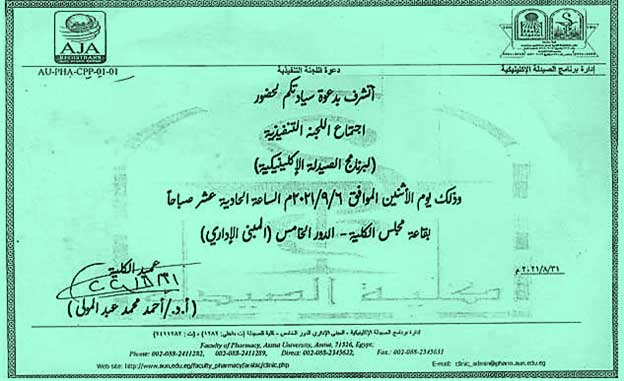 AJA
REGISTRARS
AU-PHA-CPP-01-01
دعوة اللجنة التنفيذية
إدارة برنامج الصيدلة الإكلينيكية
أتشرف بدعوة سيادتكم لحضور
اجتماع اللجنة التنفيذية
(لبرنامج الصيدلة الإكلينيكية)
وذلك يوم الأثنين الموافق ٢٠٢١/٩/٦م الساعة الحادية عشر صباحاً
بقاعة مجلس الكلية - الدور الخامس (المبنى الإداري)
عميد الكلية
٢٠٢١/٨/٣١م
(أ.د./أحمد محمد عبد المولى)
إدارة برنامج الصيدلة الإكلينيكية - المبنى الإداري الدور الخامس - كلية الصيدلة
Faculty of Pharmacy, Assiut University, Assiut, 71526, Egypt.
Phone: 002-088-2411282, 002-088-2411289, Direct: 002-088-2345622, Fax: 002-088-2345631
Web site: http://www.aun.edu.eg/faculty_pharmacy/arabic/clinic.php E-mail: clinic_admin@pharm.aun.edu.eg